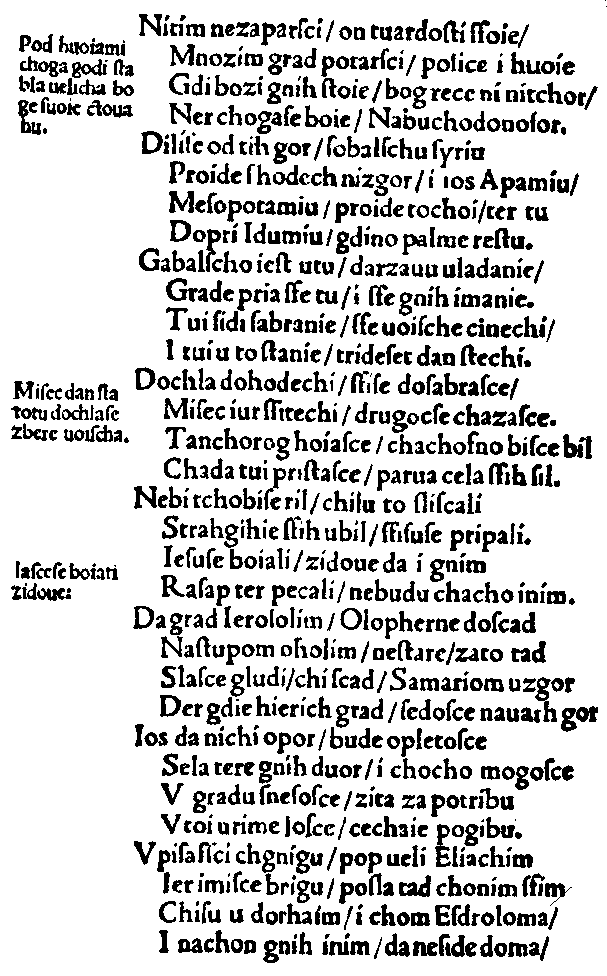 Pod huoiami
choga godi ſta
bla uelicha bo
ge ſuoie ctoua
hu.
Nitim nezaparſci / on tuardoſti ſſoie /
Mnozim grad potarſci / police i huoie
Gdi bozi gnih ſtoie / bog rece ni nitchor /
Ner chogaſe boie / Nabuchodonoſor.
Diliſe od tih gor / ſobalſchu ſyriu
Proide ſhodech nizgor / i ios Apamiu /
Meſopotamiu / proide tochoi / ter tu
Dopri Idumiu / gdino palme reſtu.
Gabalſcho ieſt utu / darzauu uladanie /
Grade pria ſſe tu / i ſſe gnih imanie.
Tui ſidi ſabranie / ſſe uoiſche cinechi /
I tui u to ſtanie / trideſet dan ſtechi.
Miſec dan ſta
totu dochlaſe
zbere uoiſcha.
Dochla dohodechi / ſſiſe doſabraſce /
Miſec iur ſſitechi / drugocſe chazaſce.
Tanchorog hoiaſce / chachoſno biſce bil
Chada tui priſtaſce / parua cela ſſih ſil.
Nebi tchobiſe ril / chiſu to ſliſcali
Strahgihie ſſih ubil / ſſiſuſe pripali.
Iaſceſe boiati
zidoue:
Ieſuſe boiali / zidoue da i gnim
Raſap ter pecali / nebudu chacho inim.
Da grad Ieroſolim / Olopherne doſcad
Naſtupom oholim / neſtare / zato tad
Slaſce gludi / chi ſcad / Samariom uzgor
Der gdie hierich grad / ſedoſce nauarh gor
Ios da nichi opor / bude opletoſce
Sela tere gnih duor / i chocho mogoſce
V gradu ſneſoſce / zita za potribu
V toi urime loſce / cechaie pogibu.
Vpiſaſici chgnigu / pop ueli Eliachim
Ier imiſce brigu / poſla tad chonim ſſim
Chiſu u dorhaim / i chom Eſdroloma /
I nachon gnih inim / da neſide doma /